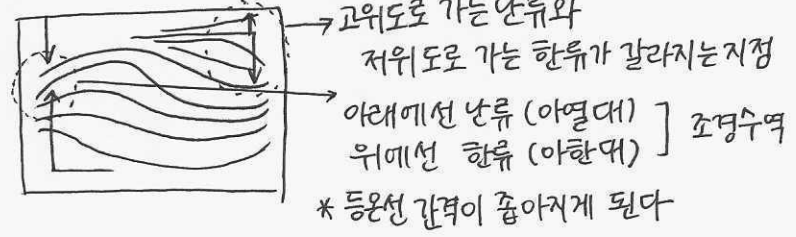 고위도로 가는 난류와
저위도로 가는 한류가 갈라지는지점
아래에선 난류 (아열대)
위에선 한류 (아한대) ] 조경수역
* 등온선 간격이 좁아지게 된다